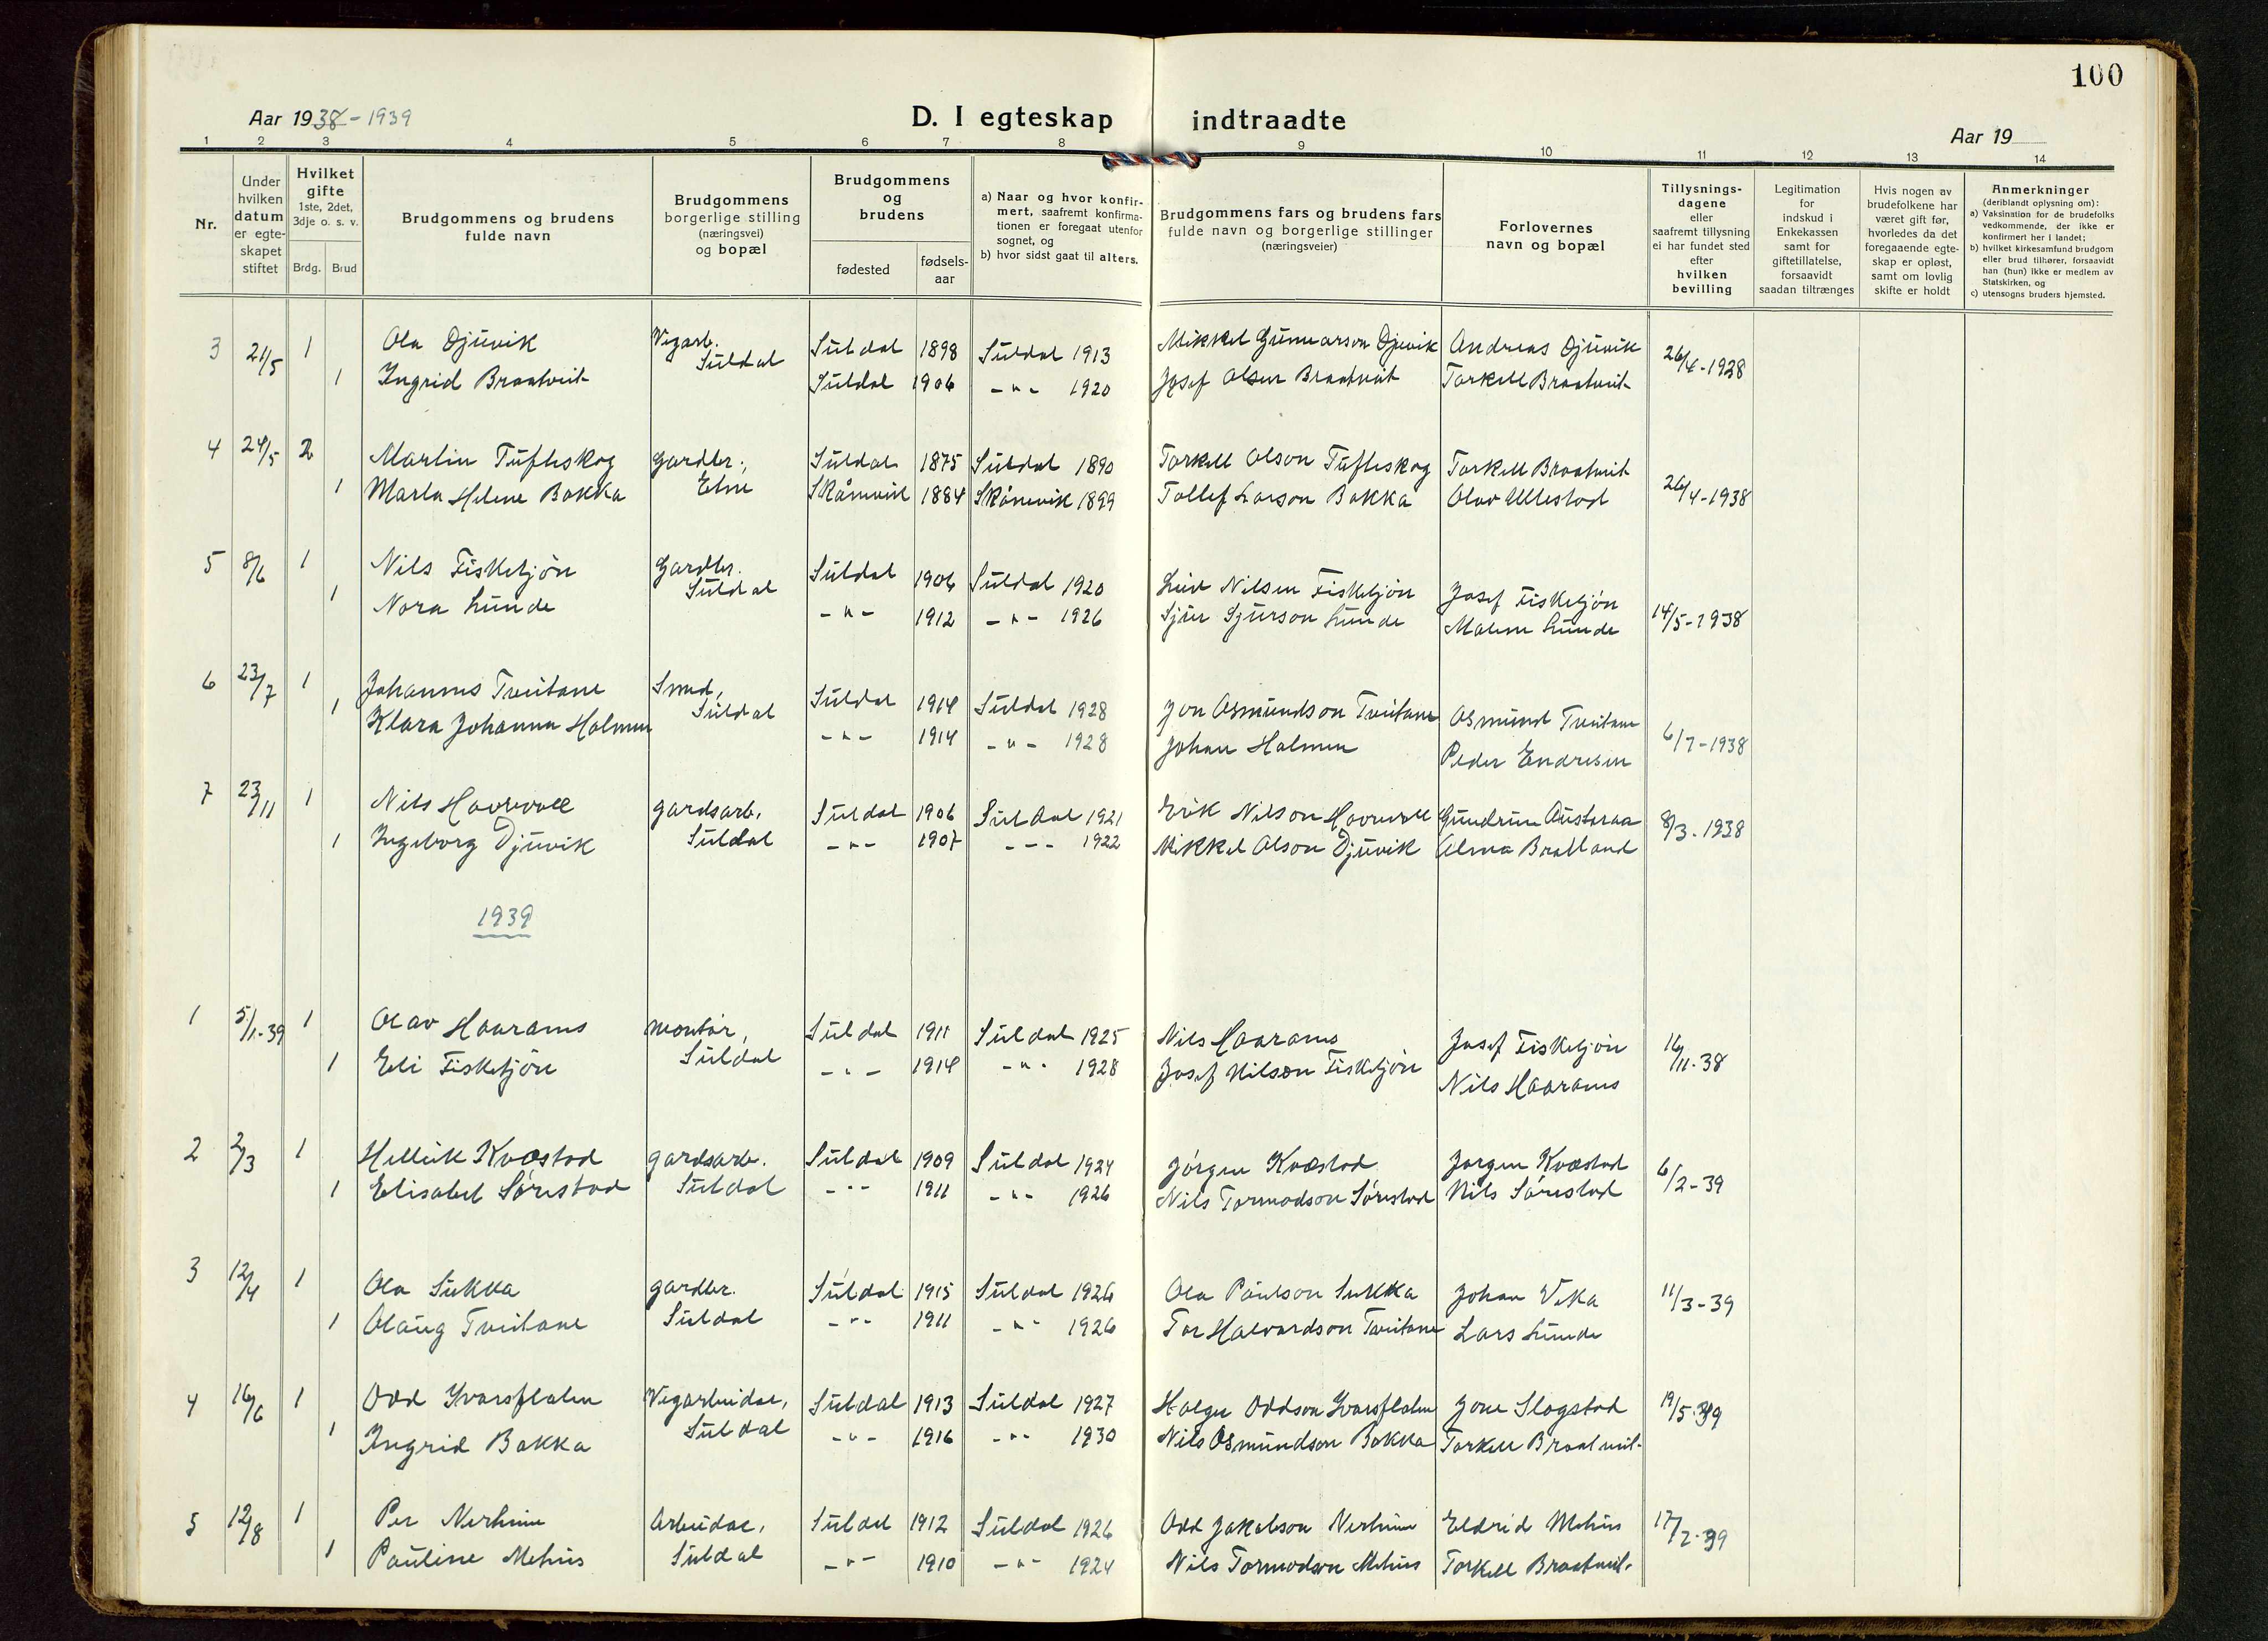 100
Aar 1938-1939
D. I egteskap indtraadte
Aar 19
1 2 3 4 5 6 7 8 9 10 11 12 13 14
Nr.
Under hvilken datum er egteskapet stiftet
Hvilket gifte 1ste, 2det, 3dje o. s. v.
Brdg. Brud
Brudgommens og brudens fulde navn
Brudgommens borgerlige stilling (næringsvei) og bopæl
Brudgommens og brudens
fødested
fødsels-aar
a) Naar og hvor konfirmert, saafremt konfirmationen er foregaat utenfor sognet, og
b) hvor sidst gaat til alters.
Brudgommens fars og brudens fars fulde navn og borgerlige stillinger (næringsveier)
Forlovernes navn og bopæl
Tillysningsdagene eller saafremt tillysning ei har fundet sted efter hvilken bevilling
Legitimation for indskud i Enkekassen samt for giftetillatelse, forsaavidt saadan tiltrænges
Hvis nogen av brudefolkene har været gift før, hvorledes da det foregaaende egteskap er opløst, samt om lovlig skifte er holdt
Anmerkninger (deriblandt oplysning om):
a) Vaksination for de brudefolks vedkommende, der ikke er konfirmert her i landet;
b) hvilket kirkesamfund brudgom eller brud tilhører, forsaavidt han (hun) ikke er medlem av Statskirken, og
c) utensogns bruders hjemsted.
3 21/5 1 Ola Djuvik Vegarb. Suldal Suldal 1898 Suldal 1913 Mikkel Gunnarson Djuvik Andreas Djuvik 26/4-1928
1 Ingrid Braatveit Suldal 1906 -"- 1920 Josef Olsen Braatveit Torkell Braatveit
4 24/5 2 Martin Tufteskog Gardbr., Etne Suldal 1875 Suldal 1890 Torkell Olson Tufteskog Torkell Braatveit 26/4-1938
1 Marta Helene Bakka Skånevik 1884 Skånevik 1899 Tollef Larson Bakka Olav Ullestad
5 8/6 1 Nils Fisketjøn Gardbr. Suldal Suldal 1906 Suldal 1920 Nilsen Fisketjøn Josef Fisketjøn 14/5-1938
1 Nora Lunde -"- 1912 -"- 1926 Sjur Sjurson Lunde Malene Lunde
6 23/7 1 Johannes Tveitane Smed, Suldal Suldal 1914 Suldal 1928 Jon Asmundson Tveitane Asmund Tveitane 6/7-1938
1 Klara Johanna Holmen -"- 1914 -"- 1928 Johan Holmen Peder Endresen
7 23/11 1 Nils Havrevoll gardsarb. Suldal Suldal 1906 Suldal 1921 Eirik Nilson Havrevoll Gundrun Austaraa 8/3-1938
1 Ingeborg Djuvik -"- 1907 -"- 1922 Mikkel Olson Djuvik Alma Bratland
1939
1 5/1-39 1 Olav Haarams montør, Suldal Suldal 1911 Suldal 1925 Nils Haarams Josef Fisketjøn 16/11-38
1 Eli Fisketjøn -"- 1914 -"- 1928 Josef Nilson Fisketjøn Nils Haarams
2 2/3 1 Helleik Kvæstad gardsarb. Suldal Suldal 1909 Suldal 1924 Jørgen Kvæstad Jørgen Kvæstad 6/2-39
1 Elisabet Sørestad -"- 1911 -"- 1926 Nils Tormodson Sørestad Nils Sørestad
3 12/4 1 Ola Sukka gardbr. Suldal Suldal 1915 Suldal 1926 Ola Paulson Sukka Johan Veka 11/3-39
1 Olaug Tveitane -"- 1911 -"- 1926 Tor Halvardson Tveitane Lars Lunde
4 16/6 1 Odd Kvarsflaten Vegarbeidar, Suldal Suldal 1913 Suldal 1927 Helge Oddson Kvarsflaten Jone Slogstad 19/5-39
1 Ingrid Bakka -"- 1916 -"- 1930 Nils Osmundson Bakka Torkell Braatveit
5 12/8 1 Per Nerheim Arbeidar, Suldal Suldal 1912 Suldal 1926 Odd Jakobson Nerheim Eldrid Mehus 17/7-39
1 Pauline Mehus -"- 1910 -"- 1924 Nils Tormodson Mehus Torkell Braatveit